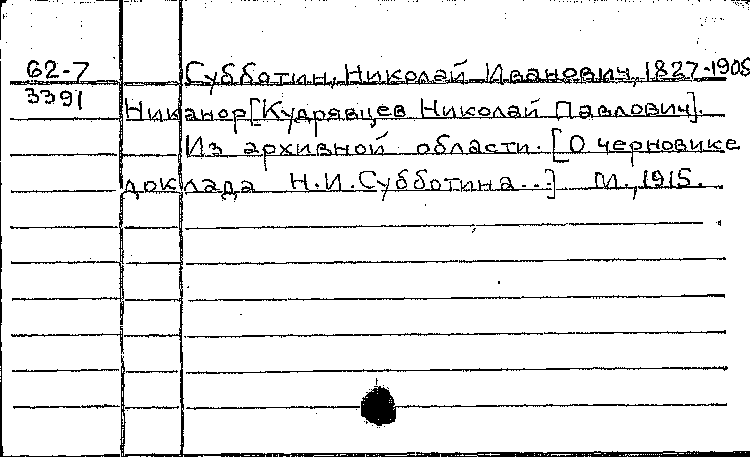 62-7 Субботин, Николай Иванович, 1827-1908
3391 Никанор [Кудрявцев Николай Павлович].
Из архивной области. [О черновике
доклада Н.И.Субботина...] М., 1915.